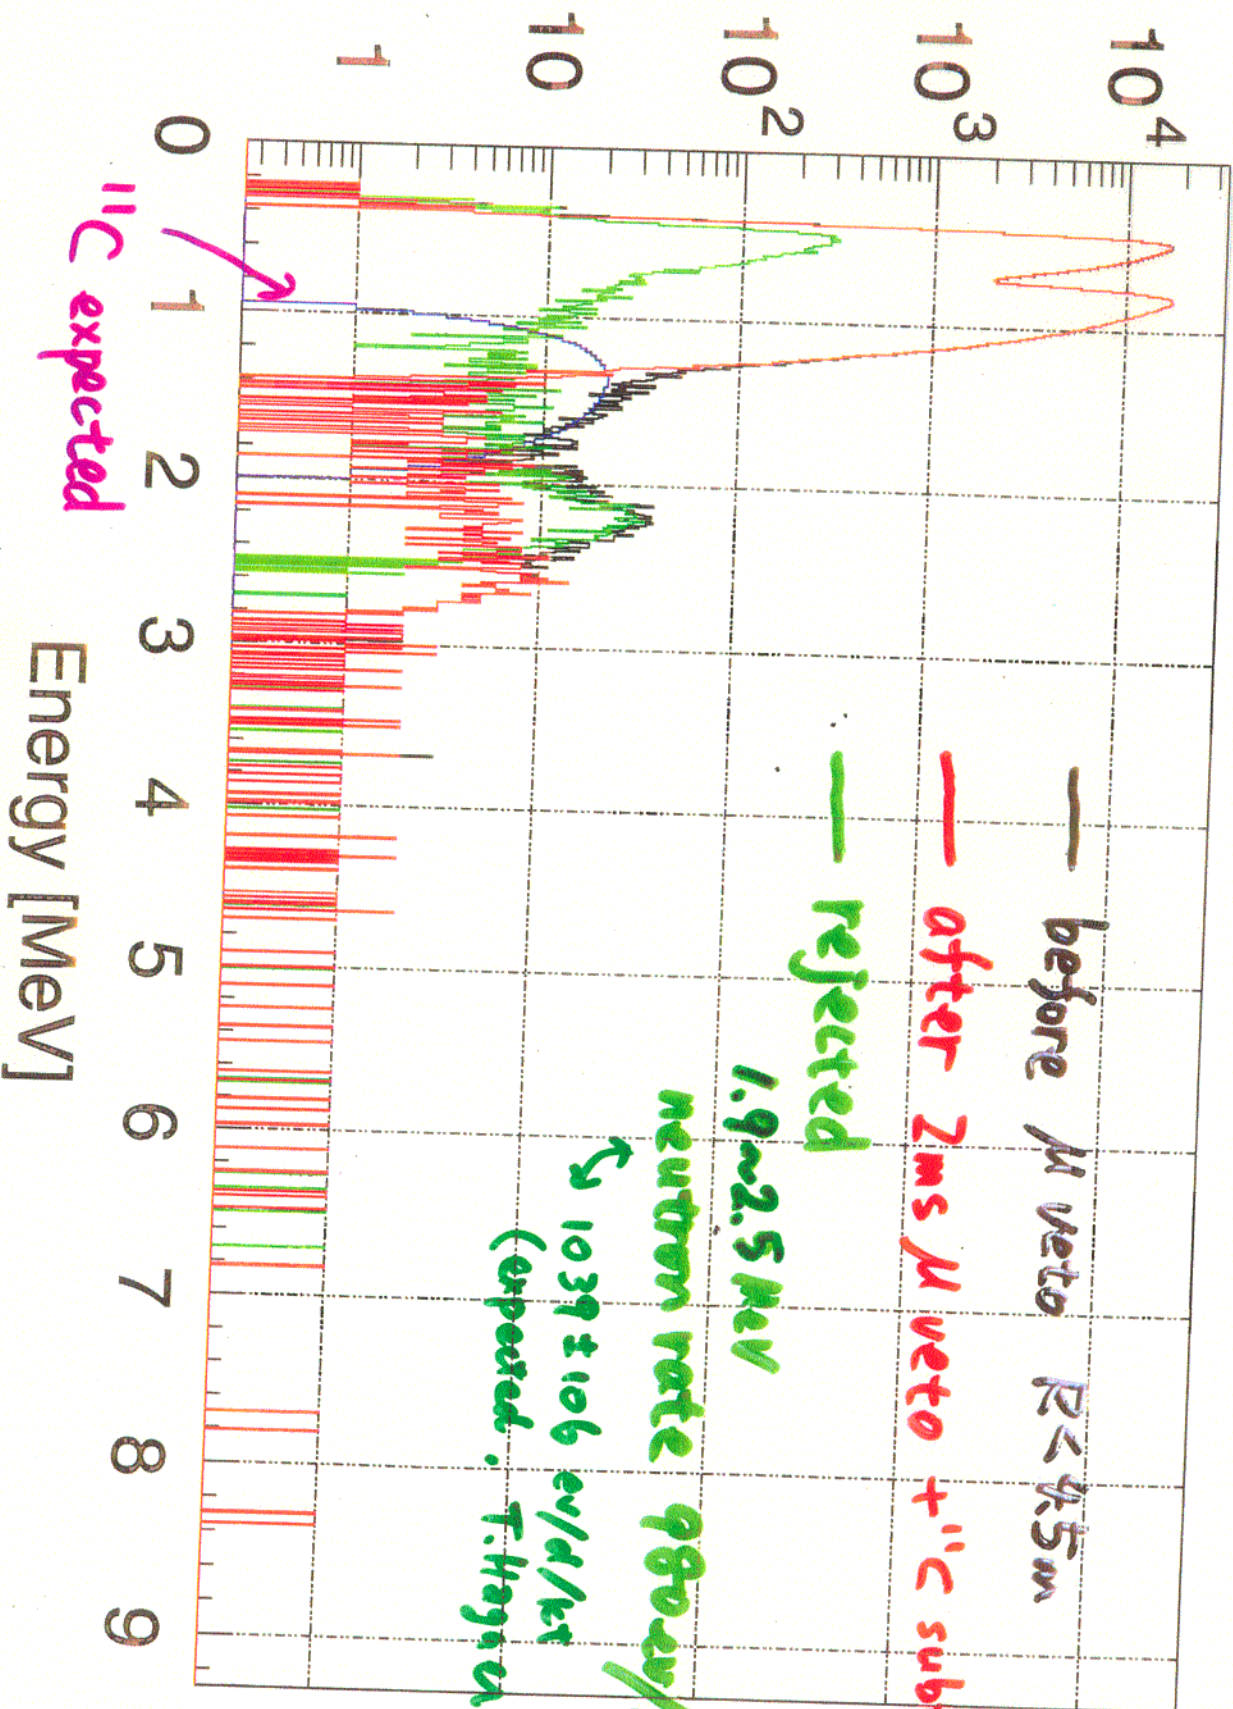 10⁴
10³
10²
10
1
0 1 2 3 4 5 6 7 8 9
Energy [MeV]
— before μ veto R<4.5m
— after 2ms μ veto + ¹¹C sub
— rejected
1.9~2.5 MeV
neutron rate 980 ev/
1039 ± 106 ev/d/kt
(expected. T.Hagn
¹¹C expected